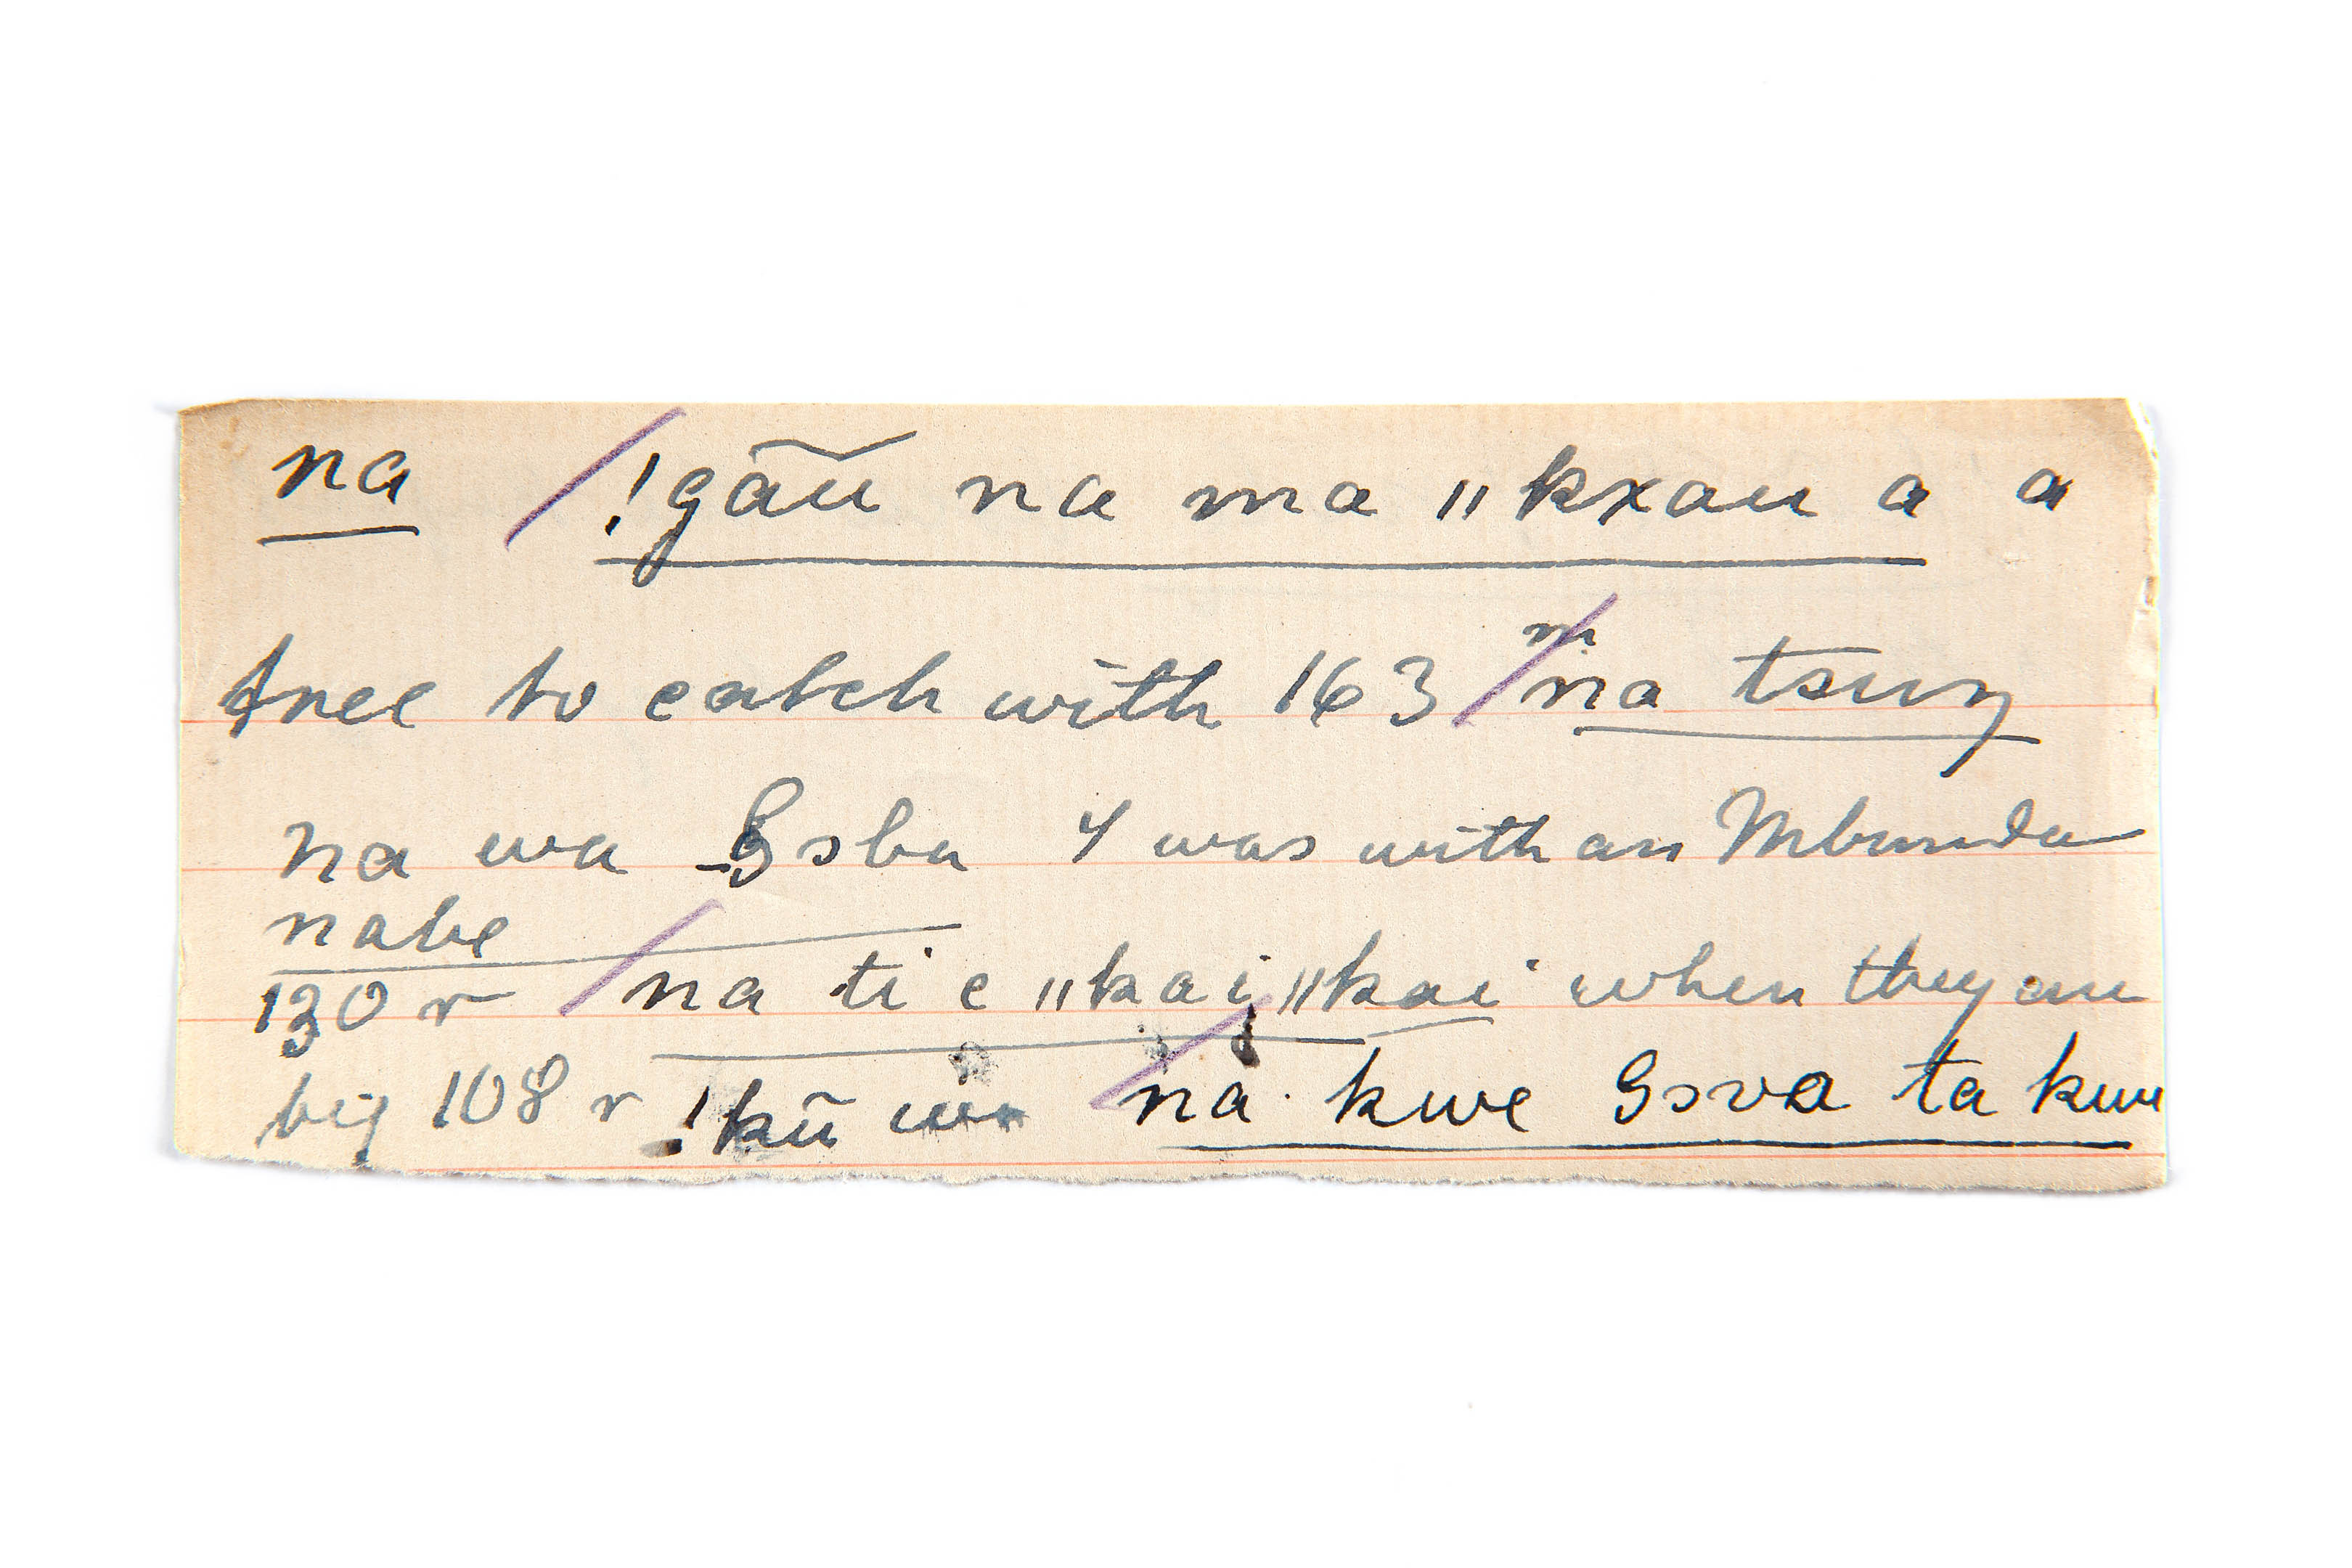 na / !gãũ na ma ‖kxau a a
tree to catch with 163 / m na tsuŋ
na wa Gsba I was with an Mbunda
nabe
130 r / na ti e ‖kai ‖kai when they are
big 108 r !kū wa / na kwe Gsva ta kuu